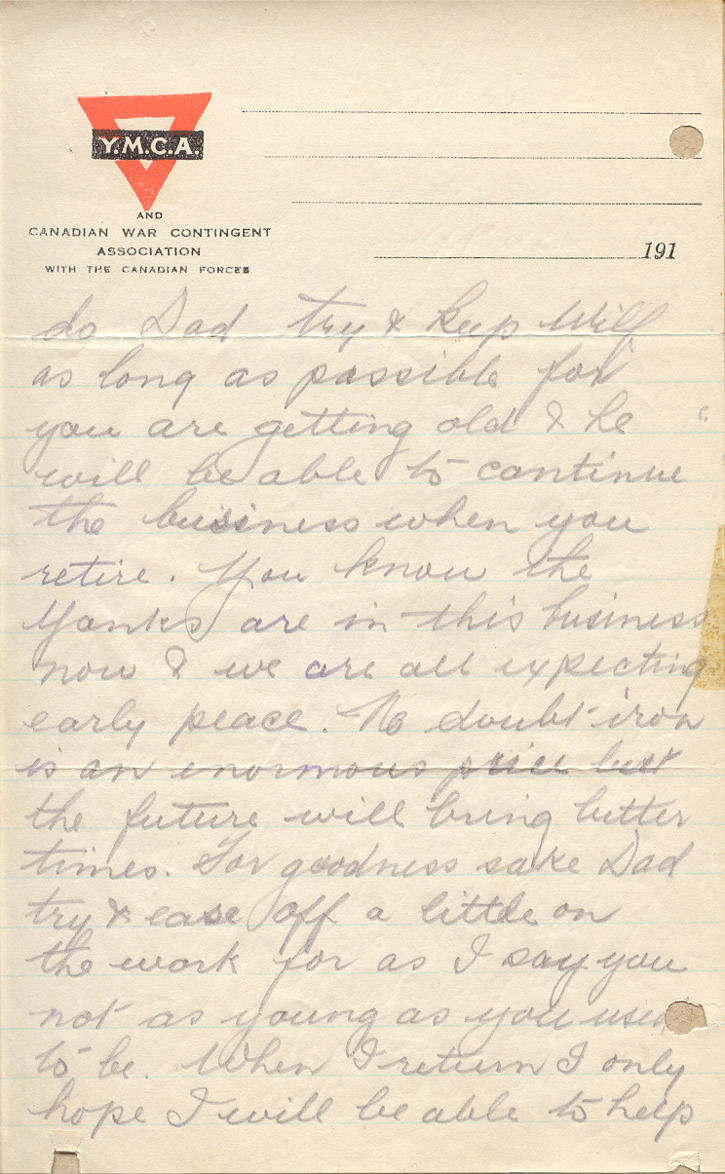 Y.M.C.A.
AND
CANADIAN WAR CONTINGENT
ASSOCIATION
WITH THE CANADIAN FORCES
191
do Dad try & keep Wilf
as long as possible for
you are getting old & he
will be able to continue
the business when you
retire. You know the
Yanks are in this business
now & we are all expecting
early peace. No doubt iron
is an enormous price but
the future will bring better
times. For goodness sake Dad
try & ease off a little on
the work for as I say you
not as young as you used
to be. When I return I only
hope I will be able to help